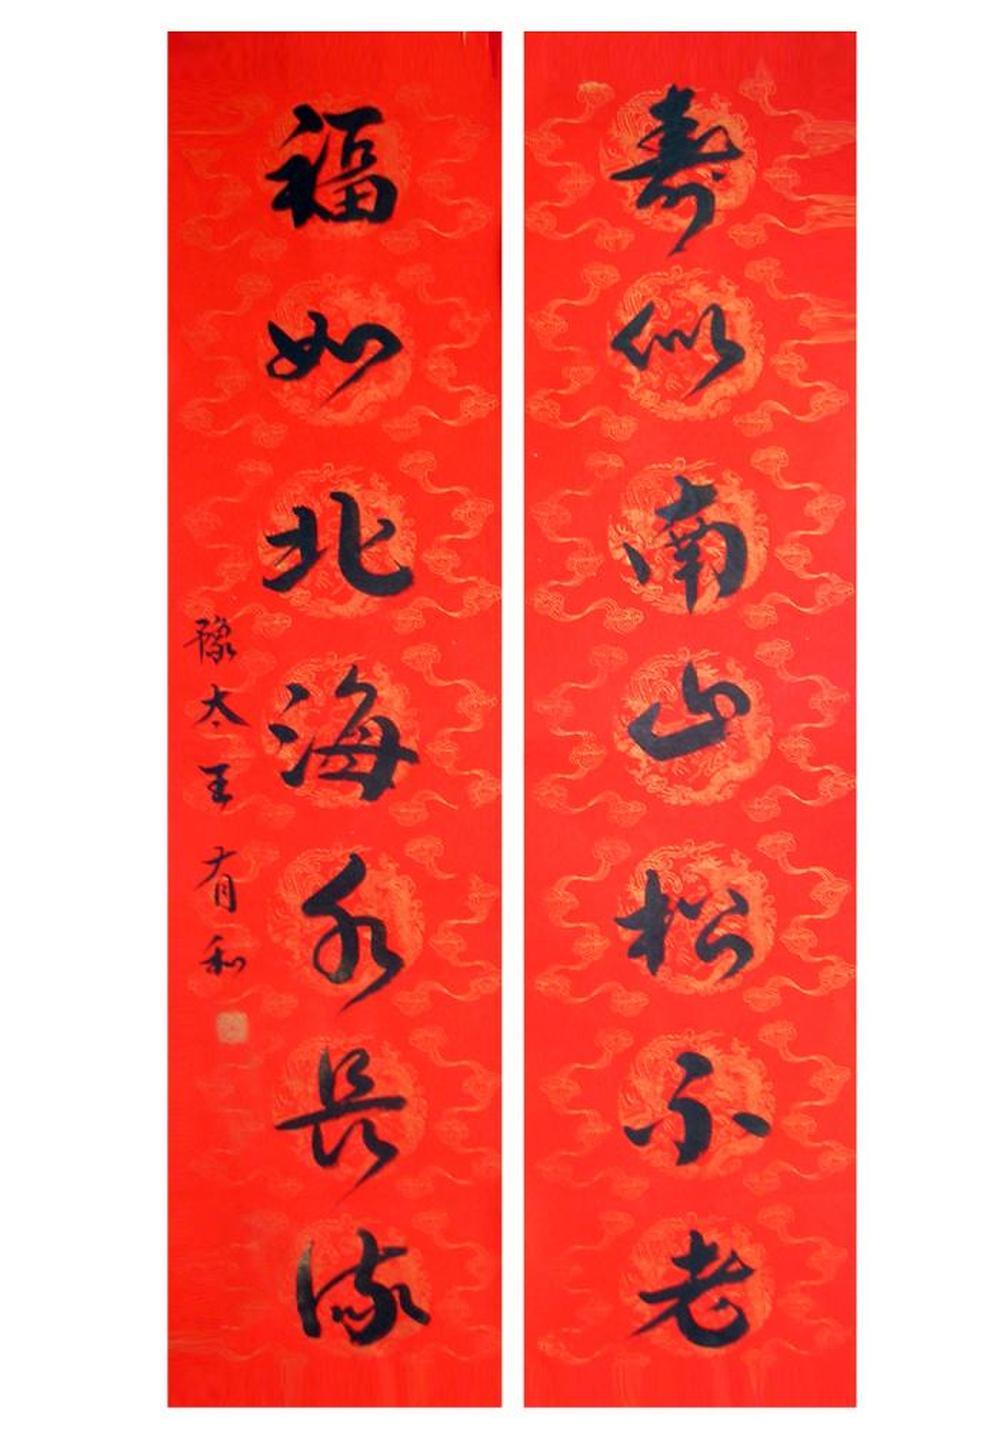 寿似南山松不老
福如北海水长流
豫太王有和